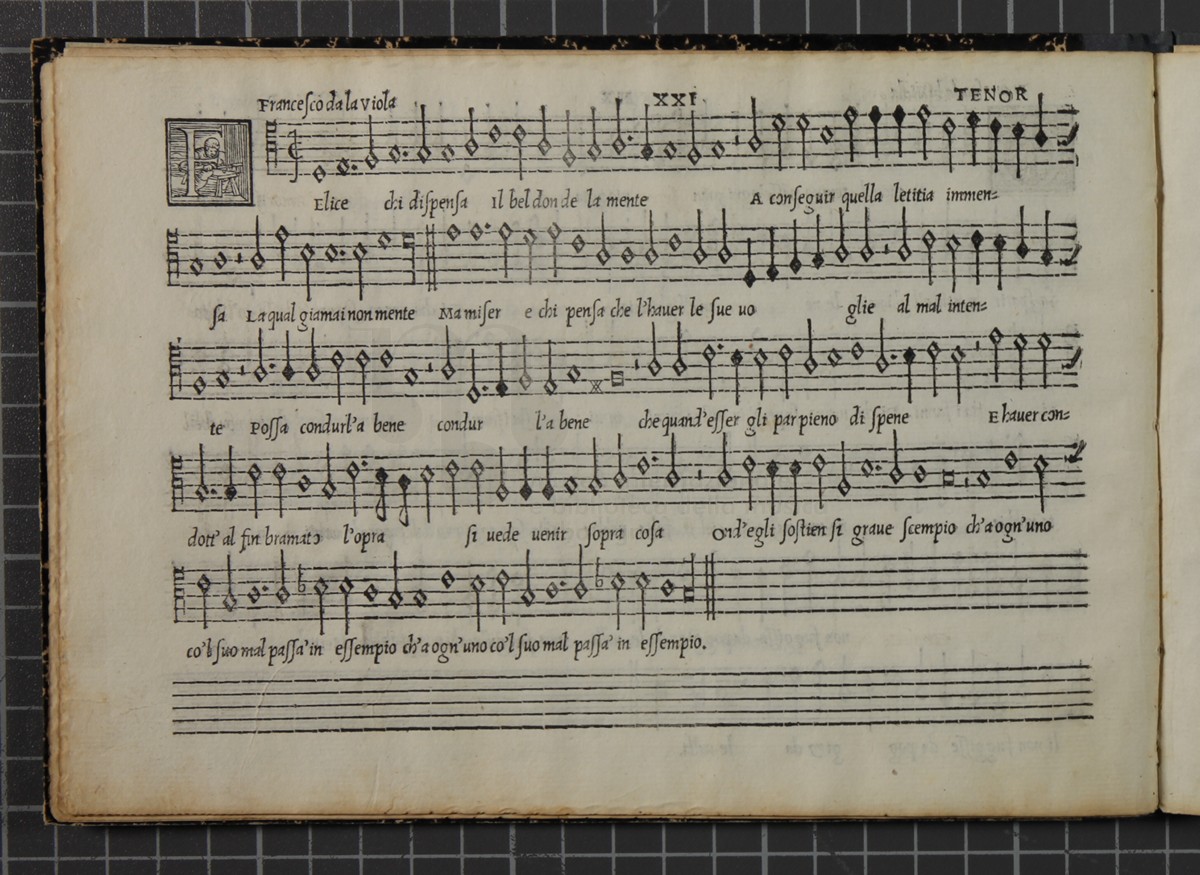 Francesco da la Viola XXI. TENOR
F Elice chi dispensa Il bel don de la mente A conseguir quella letitia immen=
sa La qual giamai non mente Ma miser e chi pensa che l'hauer le sue uo glie al mal inten=
te Possa condurl'a bene condur l'a bene che quand'esser gli par pieno di spene E hauer con=
dott' al fin bramato l'opra si uede uenir sopra cosa Ond'egli sostien si graue scempio ch'a ogn'uno
co'l suo mal passa' in essempio ch'a ogn'uno co'l suo mal passa' in essempio.